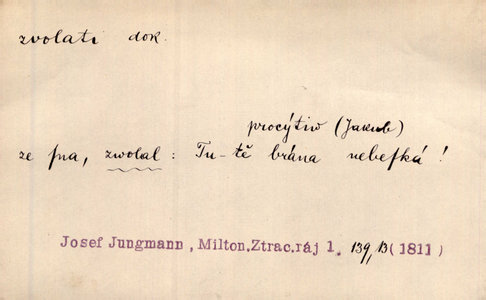 zvolati dok.
procýtiw (Jakub)
ze sna, zwolal: Tu-tě brána nebeská!
Josef Jungmann, Milton.Ztrac.ráj 1. 139, 13 (1811)